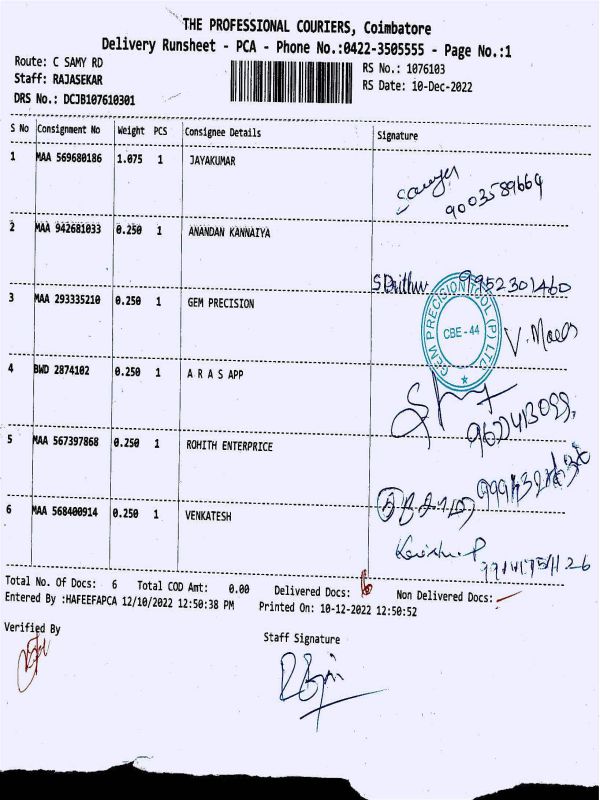 THE PROFESSIONAL COURIERS, Coimbatore
Delivery Runsheet - PCA - Phone No.:0422-3505555 - Page No.:1
Route: C SAMY RD
RS No.: 1076103
Staff: RAJASEKAR
RS Date: 10-Dec-2022
DRS No.: DCJB107610301
S No Consignment No Weight PCS Consignee Details Signature
1 MAA 569680186 1.075 1 JAYAKUMAR
9003589664
2 MAA 942681033 0.250 1 ANANDAN KANNAIYA
9952301460
3 MAA 293335210 0.250 1 GEM PRECISION
GEM PRECISION TOOL (P) LTD
CBE-44
4 BWD 2874102 0.250 1 A R A S APP
5 MAA 567397868 0.250 1 ROHITH ENTERPRICE
6 MAA 568400914 0.250 1 VENKATESH
Total No. Of Docs: 6 Total COD Amt: 0.00 Delivered Docs: 6 Non Delivered Docs:
Entered By :HAFEEFAPCA 12/10/2022 12:50:38 PM Printed On: 10-12-2022 12:50:52
Verified By
Staff Signature